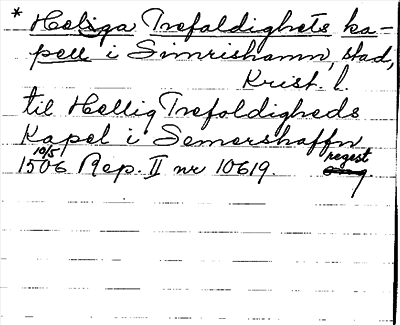 * Heliga Trefaldighets ka-
pell i Simrishamn, stad,
Krist. l.
til Hellig Trefoldigheds
Kapel i Semershaffn
10/5 regest
1506 Rep. II nr 10619.